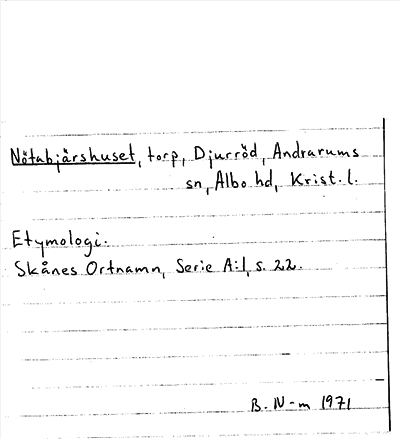 Nötabjärshuset, torp, Djurröd, Andrarums
sn, Albo hd, Krist. l.
Etymologi.
Skånes Ortnamn, Serie A:1, s. 22.
B. N-m 1971